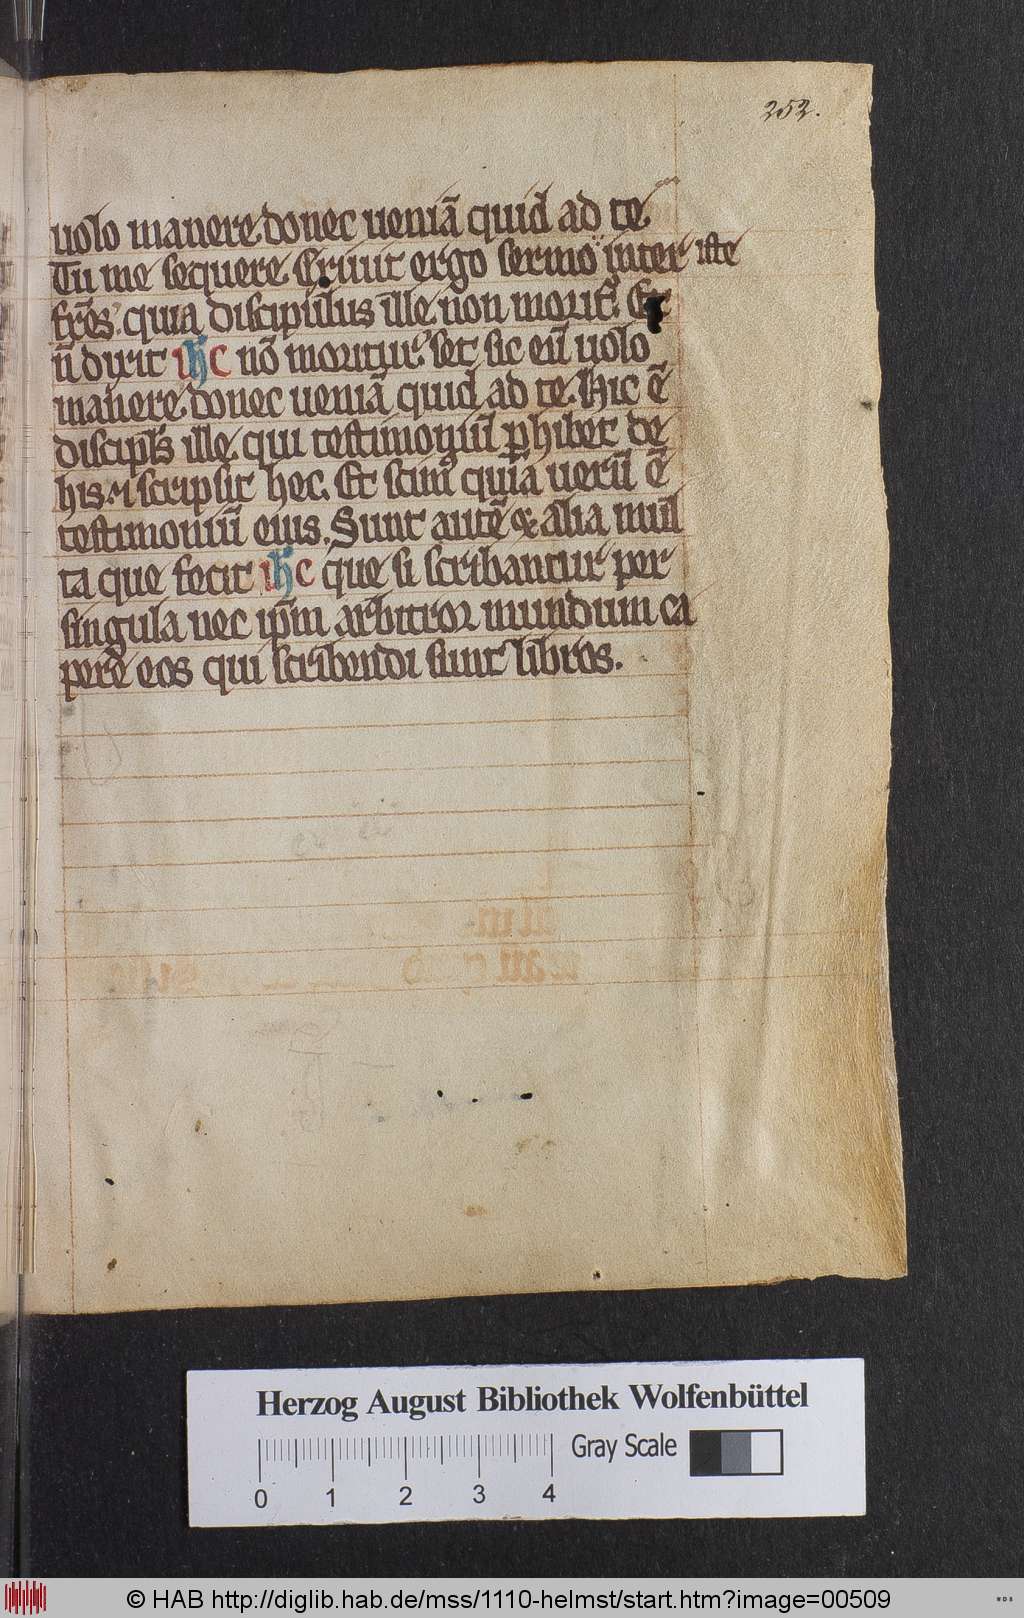 252.
uolo manere donec ueniā quid ad te.
Tu me sequere. Eriuit ergo sermo inter iste
fr̄es. quia discipulus ille non morit᷑. Et
n̄ dixit ihc nō moritur. set sic eū uolo
manere donec ueniā quid ad te. Hic ē
discipl̄s ille. qui testimoniū ꝑhibet de
his. ⁊ scripsit hec. Et scim᷒ quia uerū ē
testimoniū eius. Sunt autē & alia mul
ta que fecit ihc que si scribantur per
singula nec ip̄m arbitror mundum ca
pere eos qui scribendi sunt libros.
Herzog August Bibliothek Wolfenbüttel
Gray Scale
0 1 2 3 4
© HAB http://diglib.hab.de/mss/1110-helmst/start.htm?image=00509